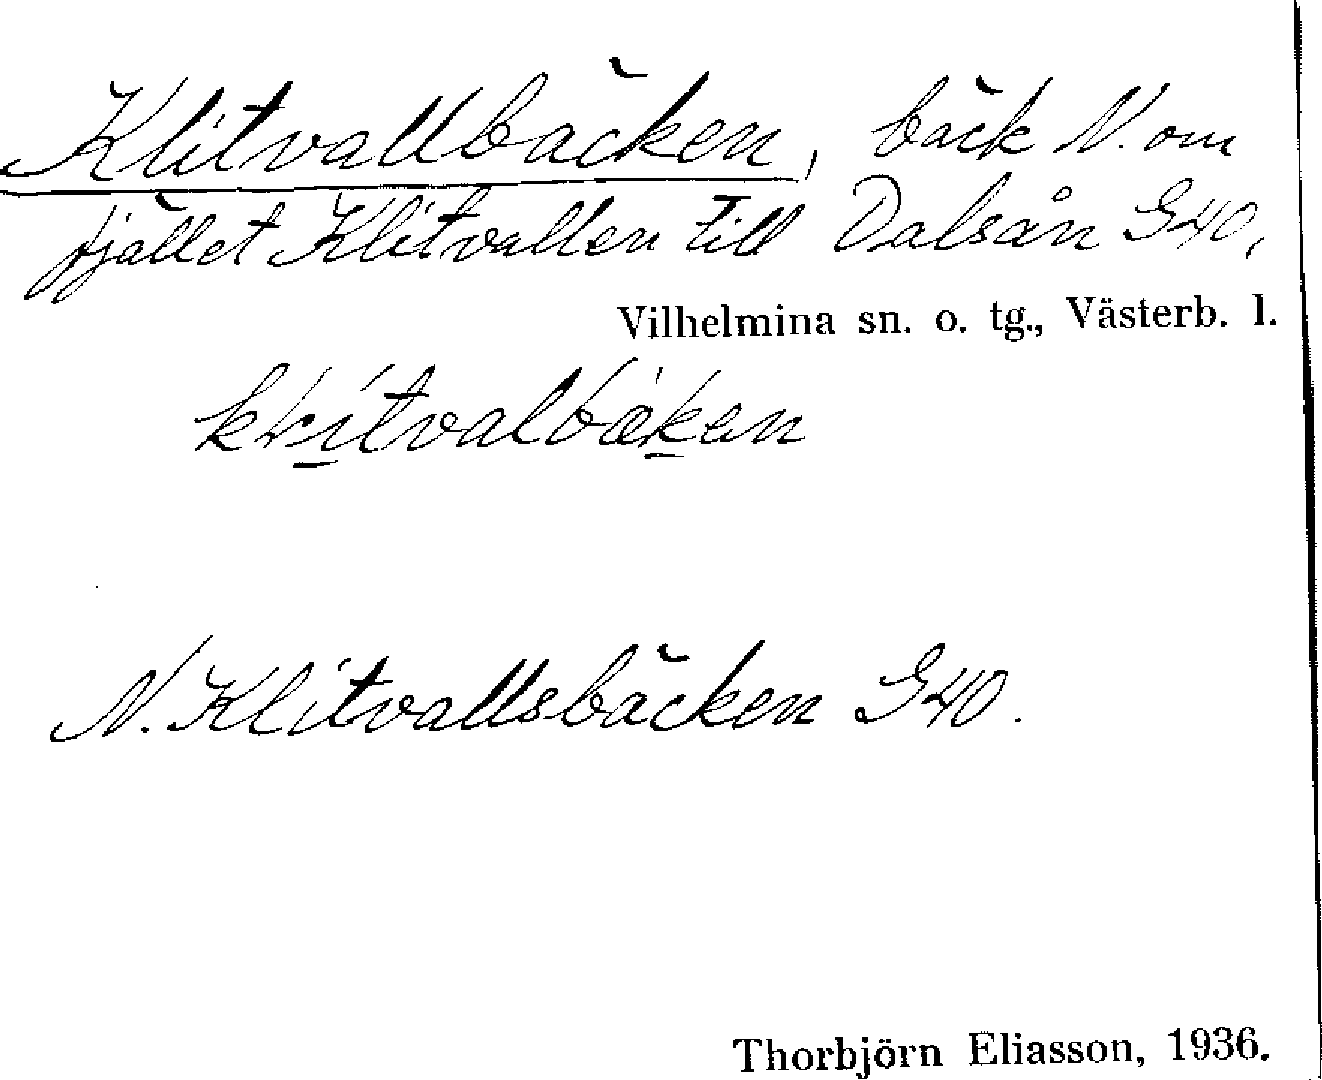 Klitvallbäcken, bäck N. om
fjället Klitvallen till Dalsån G40,
Vilhelmina sn. o. tg., Västerb. l.
N. Klitvallsbäcken G40.
Thorbjörn Eliasson, 1936.